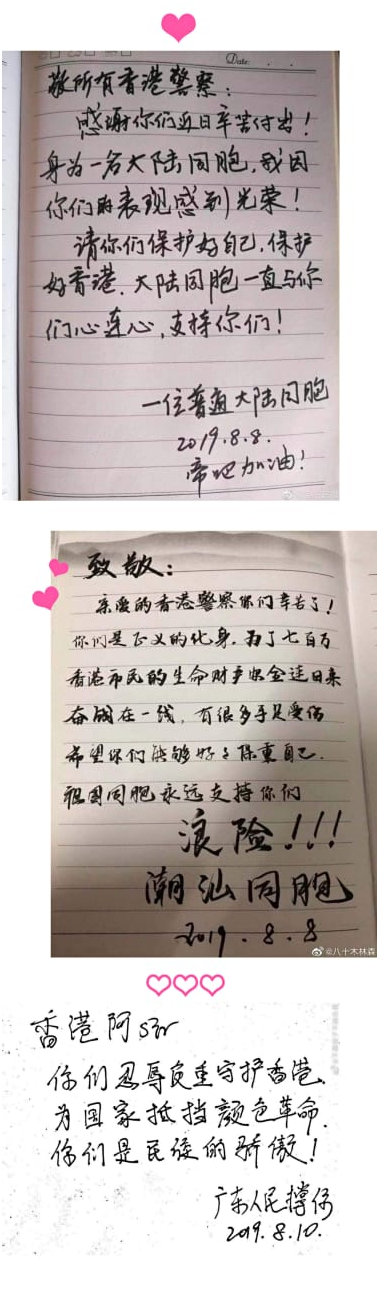 Date:
敬所有香港警察:
感谢你们近日辛苦付出!
身为一名大陆同胞,我因
你们的表现感到光荣!
请你们保护好自己,保护
好香港.大陆同胞一直与你
们心连心,支持你们!
一位普通大陆同胞
2019.8.8.
帝吧加油!
致敬:
亲爱的香港警察你们辛苦了!
你们是正义的化身,为了七百万
香港市民的生命财产安全连日来
奋战在一线,有很多手足受伤
希望你们能够好好保重自己.
祖国同胞永远支持你们
浪险!!!
潮汕同胞
2019.8.8
@八十木林森
香港阿Sir
你们忍辱负重守护香港.
为国家抵挡颜色革命.
你们是民族的骄傲!
广东人民撑你
2019.8.10.